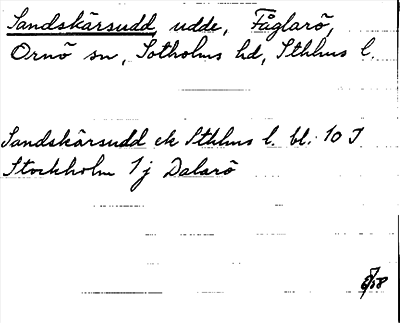 Sandskärsudd, udde, Fåglarö,
Ornö sn, Sotholms hd, Sthlms l.
Sandskärsudd ek Sthlms l. bl. 10 I
Stockholm 1j Dalarö